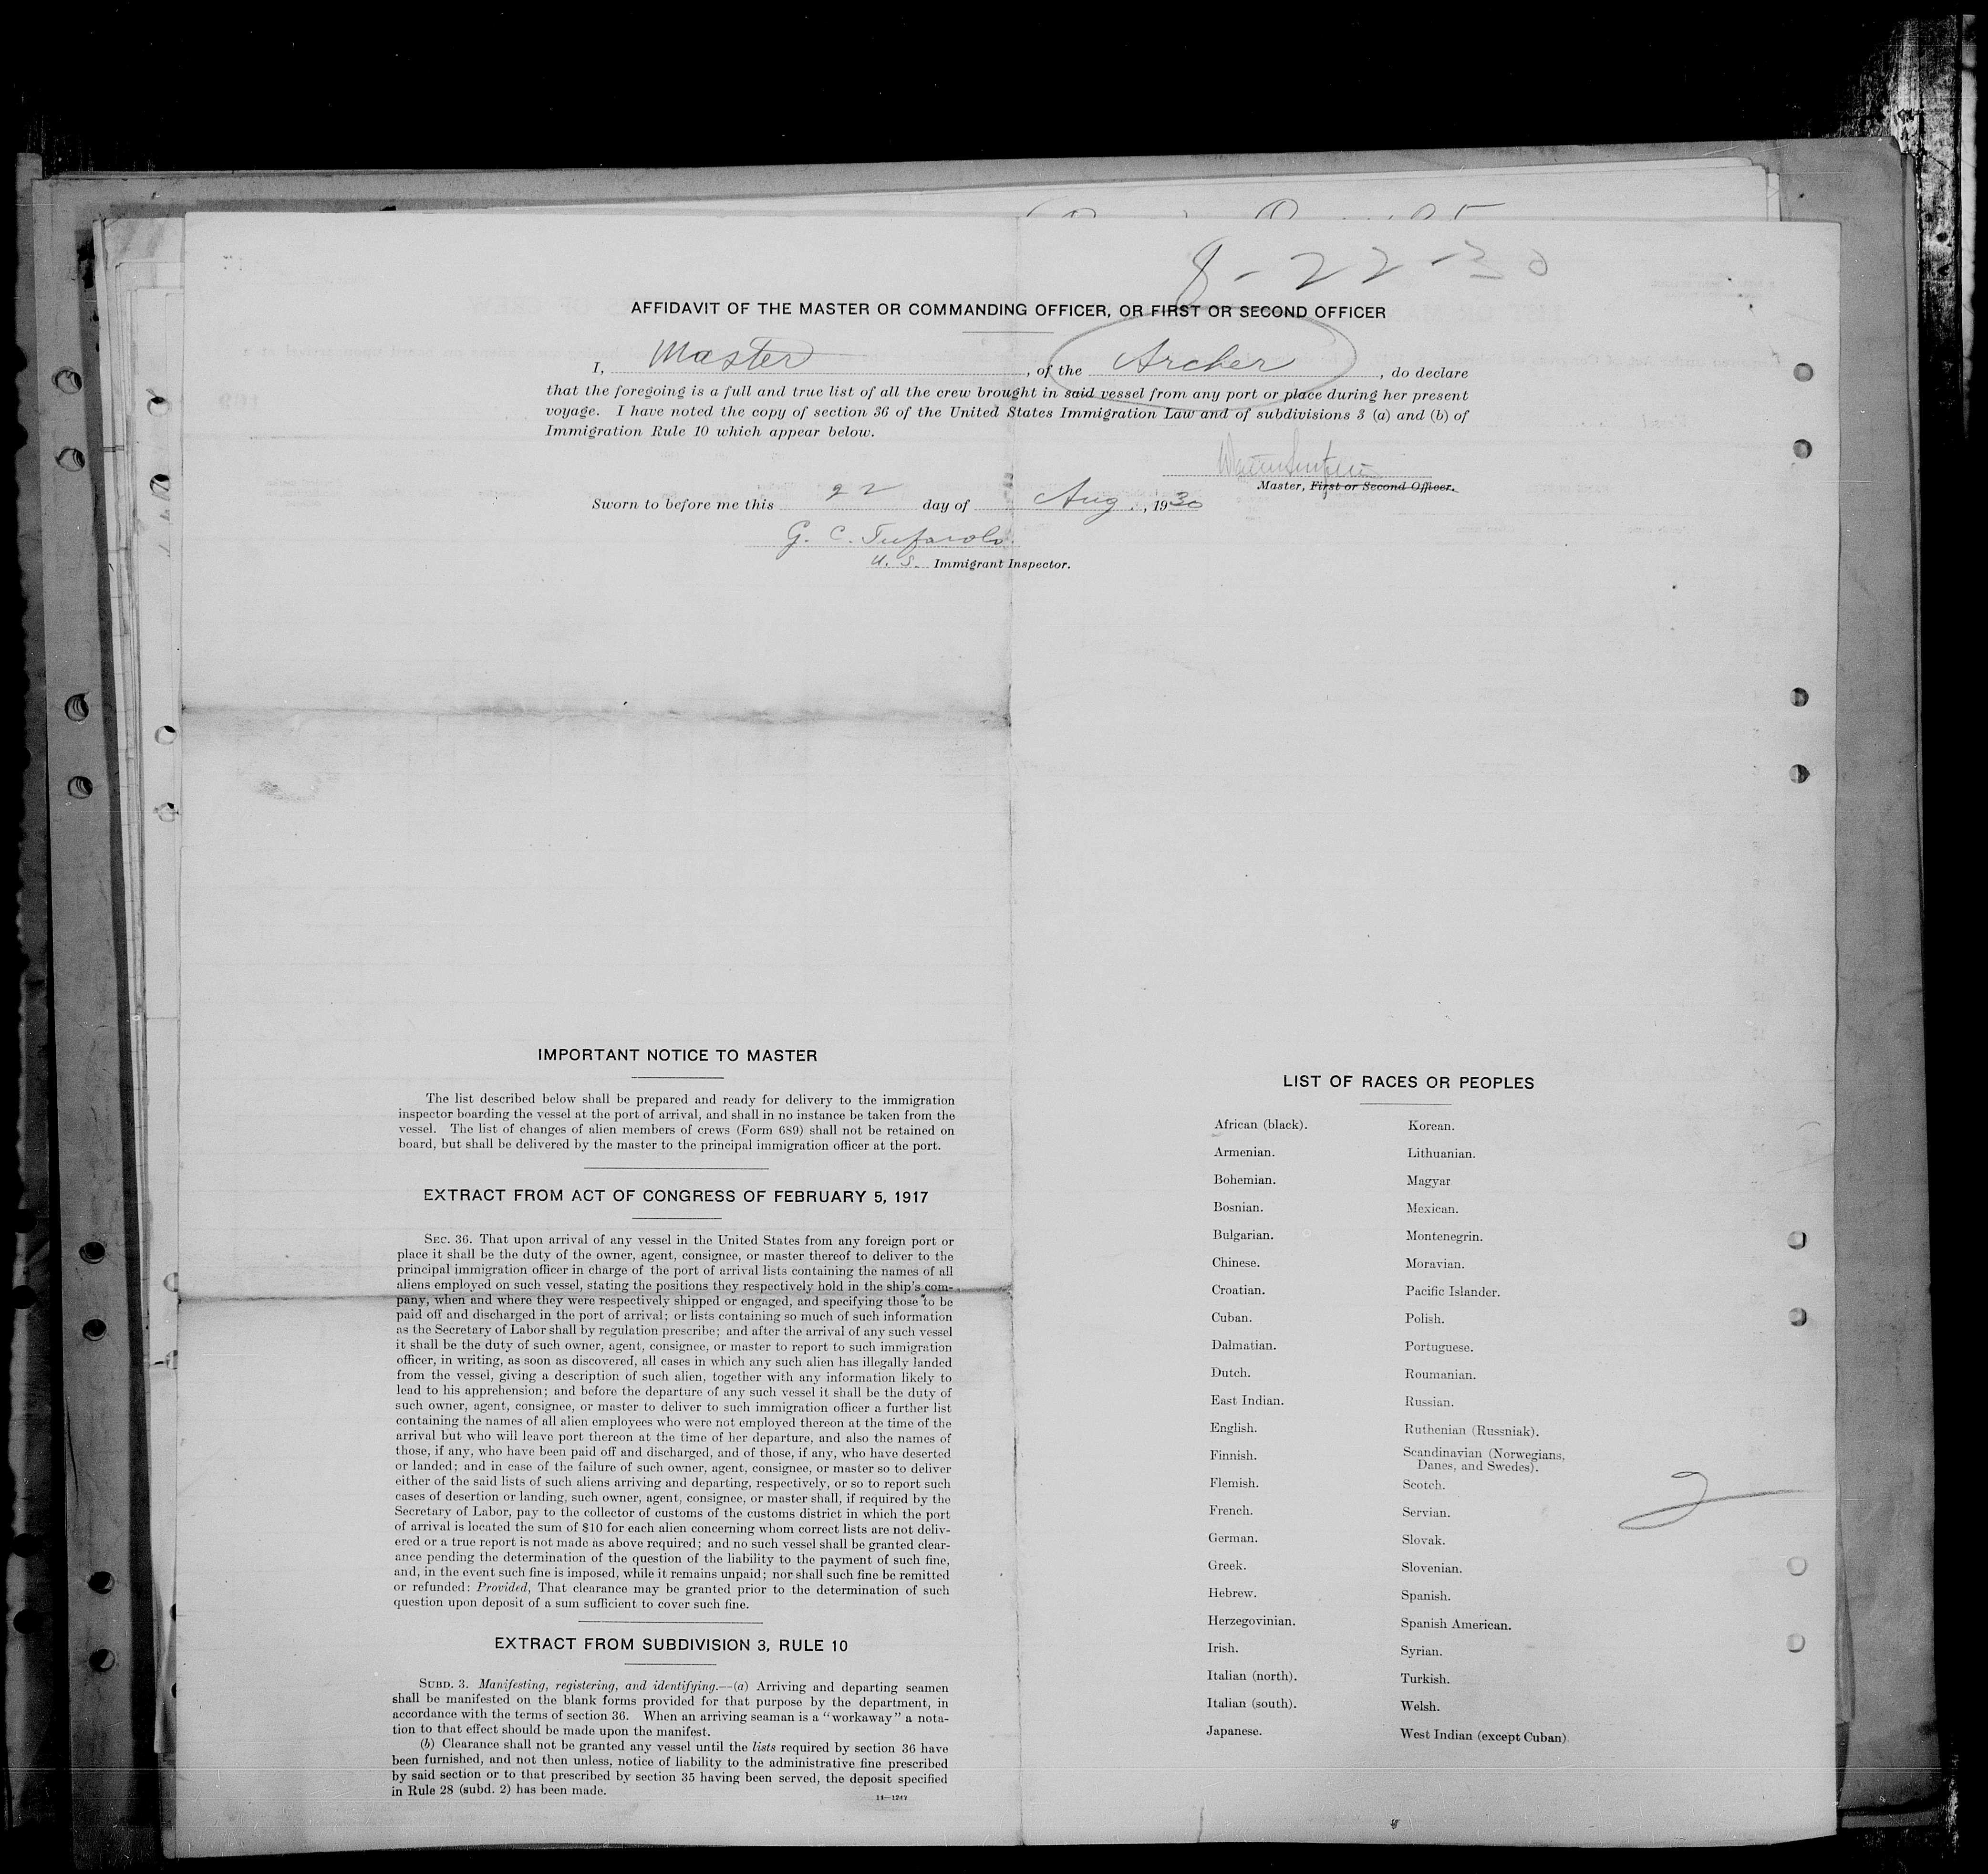 8-22-30
AFFIDAVIT OF THE MASTER OR COMMANDING OFFICER, OR FIRST OR SECOND OFFICER
I, Master, of the Archer, do declare
that the foregoing is a full and true list of all the crew brought in said vessel from any port or place during her present
voyage. I have noted the copy of section 36 of the United States Immigration Law and of subdivisions 3 (a) and (b) of
Immigration Rule 10 which appear below.
Master, First or Second Officer.
Sworn to before me this 22 day of Aug., 1930
G. C.
U. S. Immigrant Inspector.
IMPORTANT NOTICE TO MASTER
The list described below shall be prepared and ready for delivery to the immigration
inspector boarding the vessel at the port of arrival, and shall in no instance be taken from the
vessel. The list of changes of alien members of crews (Form 689) shall not be retained on
board, but shall be delivered by the master to the principal immigration officer at the port.
EXTRACT FROM ACT OF CONGRESS OF FEBRUARY 5, 1917
SEC. 36. That upon arrival of any vessel in the United States from any foreign port or
place it shall be the duty of the owner, agent, consignee, or master thereof to deliver to the
principal immigration officer in charge of the port of arrival lists containing the names of all
aliens employed on such vessel, stating the positions they respectively hold in the ship's com-
pany, when and where they were respectively shipped or engaged, and specifying those to be
paid off and discharged in the port of arrival; or lists containing so much of such information
as the Secretary of Labor shall by regulation prescribe; and after the arrival of any such vessel
it shall be the duty of such owner, agent, consignee, or master to report to such immigration
officer, in writing, as soon as discovered, all cases in which any such alien has illegally landed
from the vessel, giving a description of such alien, together with any information likely to
lead to his apprehension; and before the departure of any such vessel it shall be the duty of
such owner, agent, consignee, or master to deliver to such immigration officer a further list
containing the names of all alien employees who were not employed thereon at the time of the
arrival but who will leave port thereon at the time of her departure, and also the names of
those, if any, who have been paid off and discharged, and of those, if any, who have deserted
or landed; and in case of the failure of such owner, agent, consignee, or master so to deliver
either of the said lists of such aliens arriving and departing, respectively, or so to report such
cases of desertion or landing, such owner, agent, consignee, or master shall, if required by the
Secretary of Labor, pay to the collector of customs of the customs district in which the port
of arrival is located the sum of $10 for each alien concerning whom correct lists are not deliv-
ered or a true report is not made as above required; and no such vessel shall be granted clear-
ance pending the determination of the question of the liability to the payment of such fine,
and, in the event such fine is imposed, while it remains unpaid; nor shall such fine be remitted
or refunded: Provided, That clearance may be granted prior to the determination of such
question upon deposit of a sum sufficient to cover such fine.
EXTRACT FROM SUBDIVISION 3, RULE 10
SUBD. 3. Manifesting, registering, and identifying.—(a) Arriving and departing seamen
shall be manifested on the blank forms provided for that purpose by the department, in
accordance with the terms of section 36. When an arriving seaman is a "workaway" a nota-
tion to that effect should be made upon the manifest.
(b) Clearance shall not be granted any vessel until the lists required by section 36 have
been furnished, and not then unless, notice of liability to the administrative fine prescribed
by said section or to that prescribed by section 35 having been served, the deposit specified
in Rule 28 (subd. 2) has been made.
14—1249
LIST OF RACES OR PEOPLES
African (black).
Armenian.
Bohemian.
Bosnian.
Bulgarian.
Chinese.
Croatian.
Cuban.
Dalmatian.
Dutch.
East Indian.
English.
Finnish.
Flemish.
French.
German.
Greek.
Hebrew.
Herzegovinian.
Irish.
Italian (north).
Italian (south).
Japanese.
Korean.
Lithuanian.
Magyar
Mexican.
Montenegrin.
Moravian.
Pacific Islander.
Polish.
Portuguese.
Roumanian.
Russian.
Ruthenian (Russniak).
Scandinavian (Norwegians,
Danes, and Swedes).
Scotch.
Servian.
Slovak.
Slovenian.
Spanish.
Spanish American.
Syrian.
Turkish.
Welsh.
West Indian (except Cuban)
2